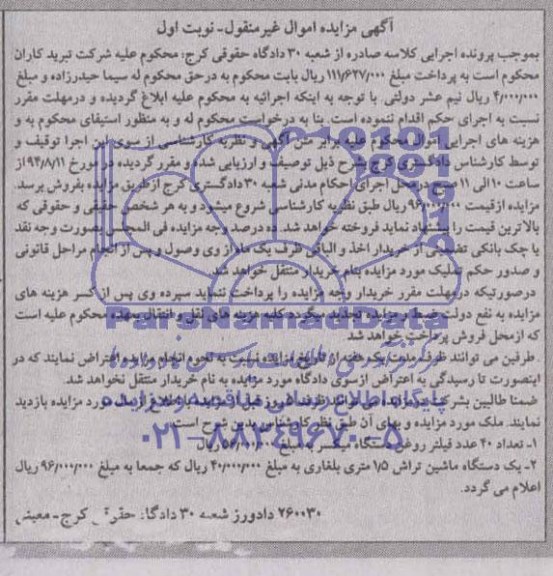 آگهی مزایده اموال غیرمنقول-نوبت اول
بموجب پرونده اجرایی کلاسه صادره از شعبه ۳۰ دادگاه حقوقی کرج: محکوم علیه شرکت تبرید کاران
محکوم است به پرداخت مبلغ ۱۱۱/۶۲۷/۰۰۰ ریال بابت محکوم به درحق محکوم له سیما حیدرزاده و مبلغ
۴/۰۰۰/۰۰۰ ریال نیم عشر دولتی. با توجه به اینکه اجرائیه به محکوم علیه ابلاغ گردیده و درمهلت مقرر
نسبت به اجرای حکم اقدام ننموده است. بنا به درخواست محکوم له و به منظور استیفای محکوم به و
هزینه های اجرایی اموال محکوم علیه برابر متن آگهی و نظریه کارشناسی از سوی این اجرا توقیف و
توسط کارشناس دادگستری کرج بشرح ذیل توصیف و ارزیابی شده و مقرر گردید در مورخ ۹۴/۸/۱۱ از
ساعت ۱۰ الی ۱۱ صبح درمحل اجرای احکام مدنی شعبه ۳۰ دادگستری کرج ازطریق مزایده بفروش برسد.
مزایده ازقیمت ۹۶/۰۰۰/۰۰۰ ریال طبق نظریه کارشناسی شروع میشود و به هر شخص حقیقی و حقوقی که
بالاترین قیمت را پیشنهاد نماید فروخته خواهد شد. ده درصد وجه مزایده فی المجلس بصورت وجه نقد
یا چک بانکی تضمینی از خریدار اخذ و الباقی ظرف یک ماه از وی وصول و پس از انجام مراحل قانونی
و صدور حکم تملیک مورد مزایده بنام خریدار منتقل خواهد شد.
درصورتیکه درمهلت مقرر خریدار وجه مزایده را پرداخت ننماید سپرده وی پس از کسر هزینه های
مزایده به نفع دولت ضبط و مزایده تجدید میگردد کلیه هزینه های نقل وانتقال بعهده محکوم علیه است
که ازمحل فروش پرداخت خواهد شد.
طرفین می توانند ظرف مدت یک هفته از تاریخ مزایده نسبت به نحوه انجام مزایده اعتراض نمایند که در
اینصورت تا رسیدگی به اعتراض ازسوی دادگاه مورد مزایده به نام خریدار منتقل نخواهد شد.
ضمنا طالبین بشرکت در مزایده می توانند ظرف پنج روز قبل از مزایده با اطلاع از مورد مزایده بازدید
نمایند. ملک مورد مزایده و بهای آن طبق نظر کارشناس بدین شرح است.
۱- تعداد ۴۰ عدد فیلتر روغن دستگاه میکسر به مبلغ ریال
۲- یک دستگاه ماشین تراش ۱/۵ متری بلغاری به مبلغ ۴۰/۰۰۰/۰۰۰ ریال که جمعا به مبلغ ۹۶/۰۰۰/۰۰۰ ریال
اعلام می گردد.
۲۶۰۰۳۰ دادورز شعبه ۳۰ دادگاه حقوقی کرج-معینی
ParsNamadData
پایگاه اطلاع رسانی مناقصه و مزایده
۰۲۱-۸۸۳۴۹۶۷۰-۵